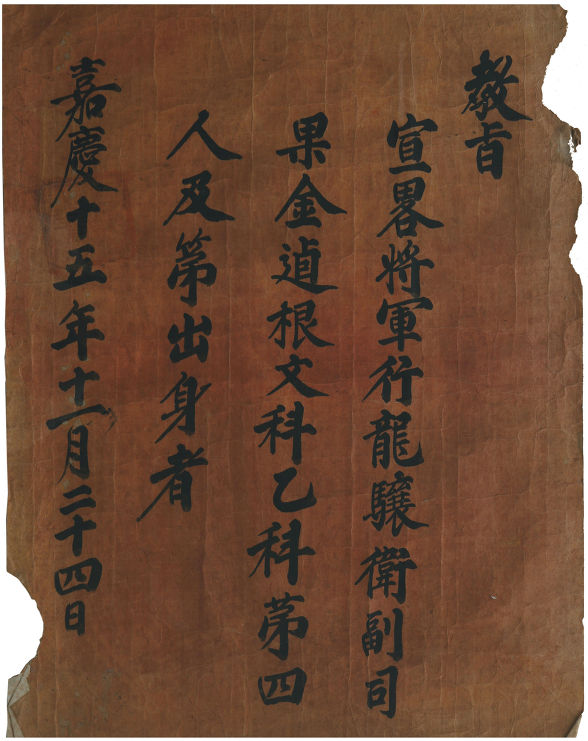 教旨
宣畧將軍行龍驤衛副司
果金逌根文科乙科苐四
人及苐出身者
嘉慶十五年十一月二十四日